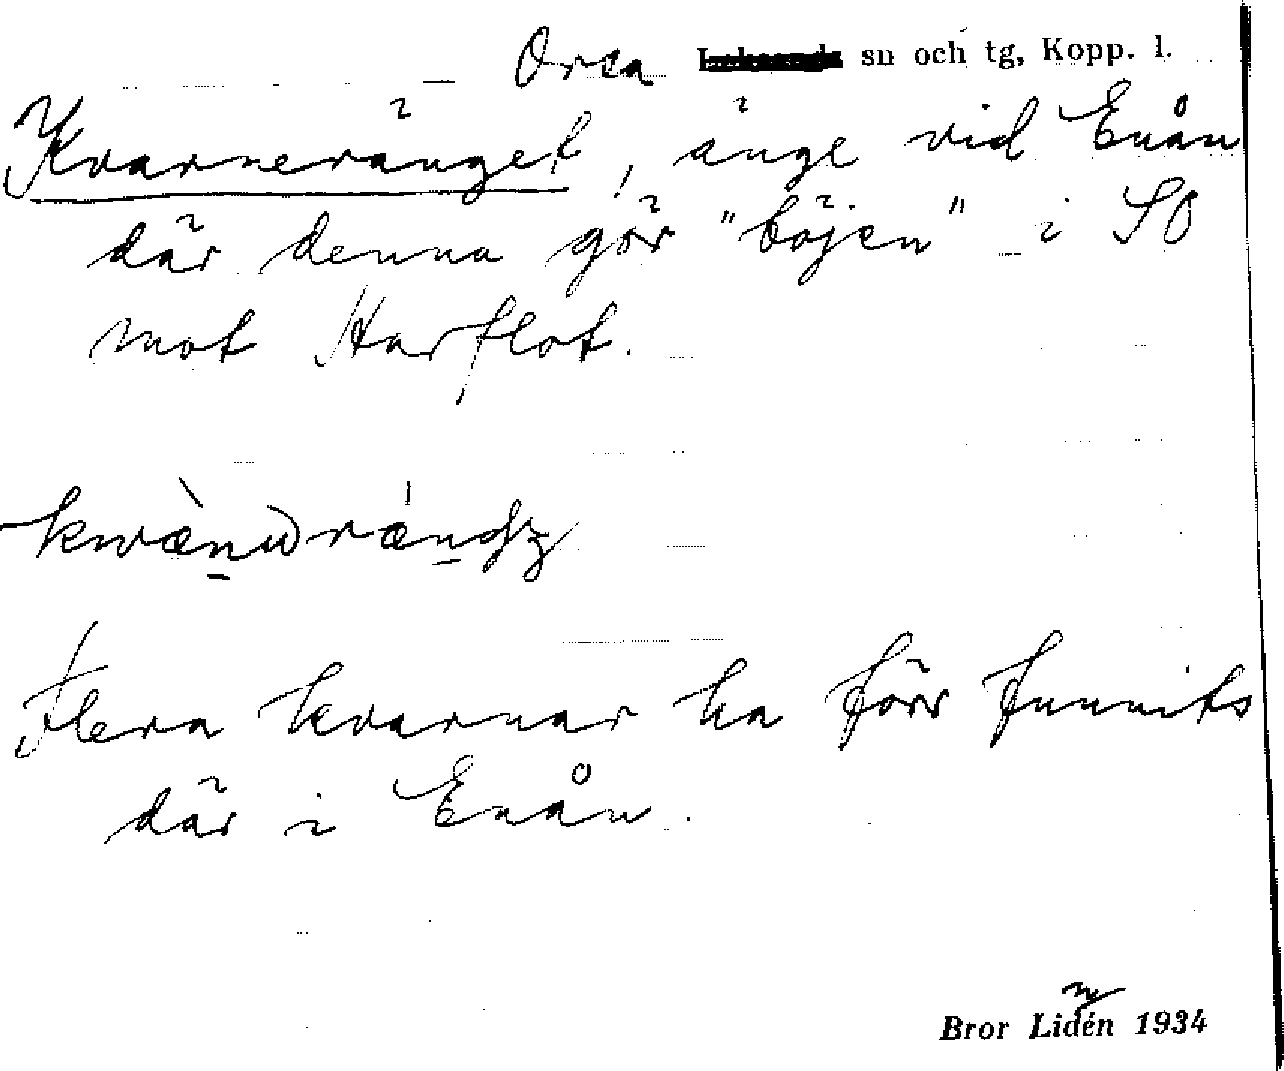 Orsa sn och tg, Kopp. l.
Kvarneränget, änge vid Enån
där denna gör "böjen" i SO
mot Harflot.
Flera kvarnar ha förr funnits
där i Enån.
Bror Lidén 1934